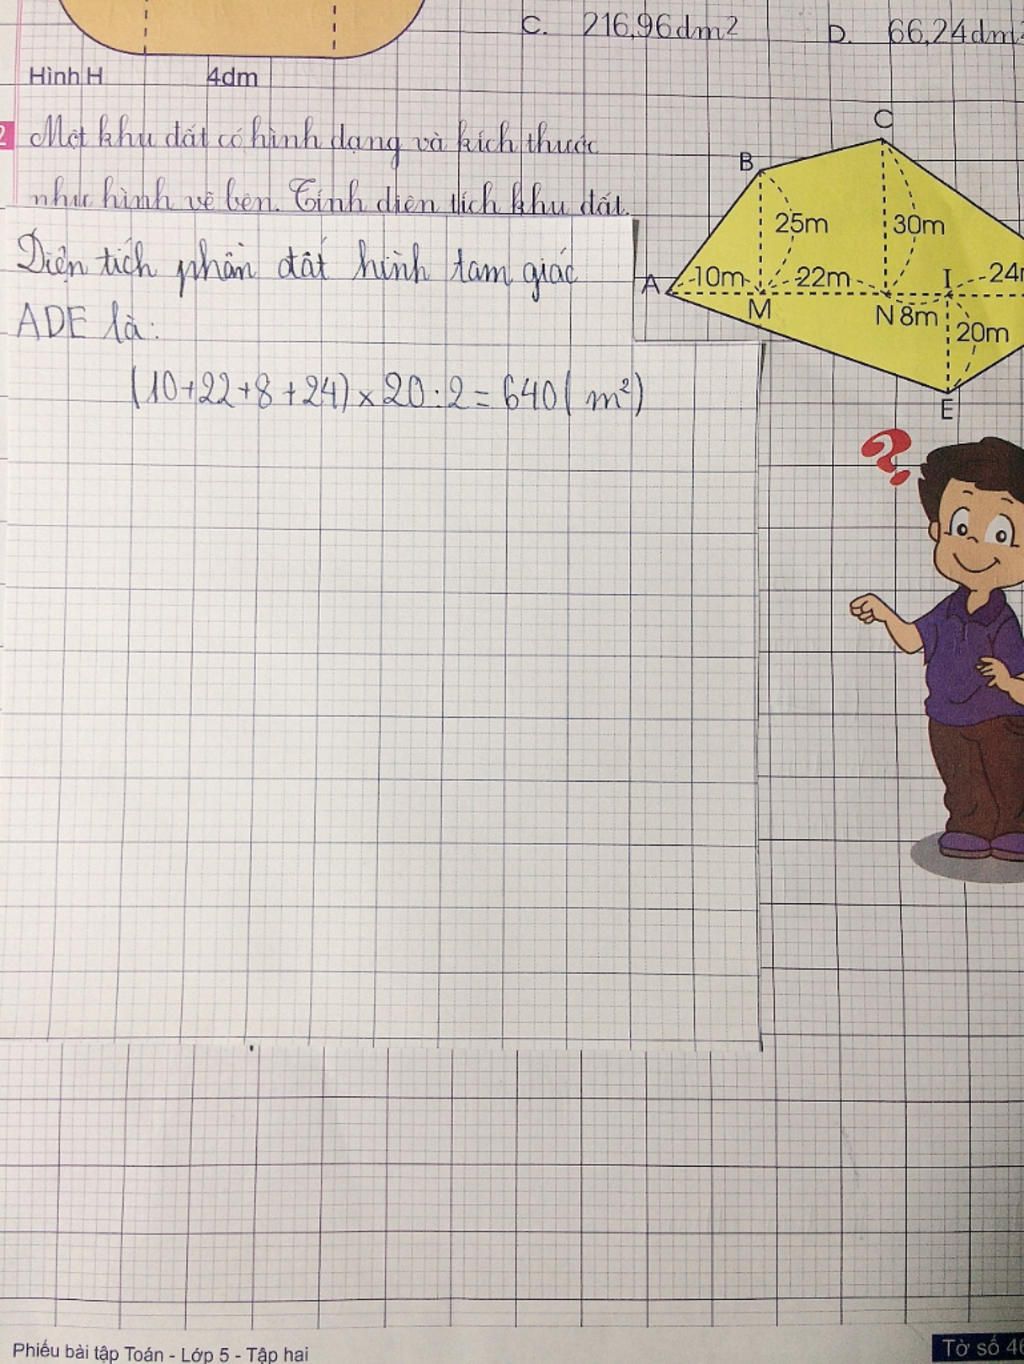 C. 216,96dm2 D. 66,24dm
Hình H 4dm
2 Một khu đất có hình dạng và kích thước
như hình vẽ bên. Tính diện tích khu đất.
C
B
25m 30m
A 10m 22m I 24
M N 8m 20m
E
Diện tích phần đất hình tam giác
ADE là:
(10+22+8+24)×20:2=640( m²)
?
Phiếu bài tập Toán - Lớp 5 - Tập hai Tờ số 40